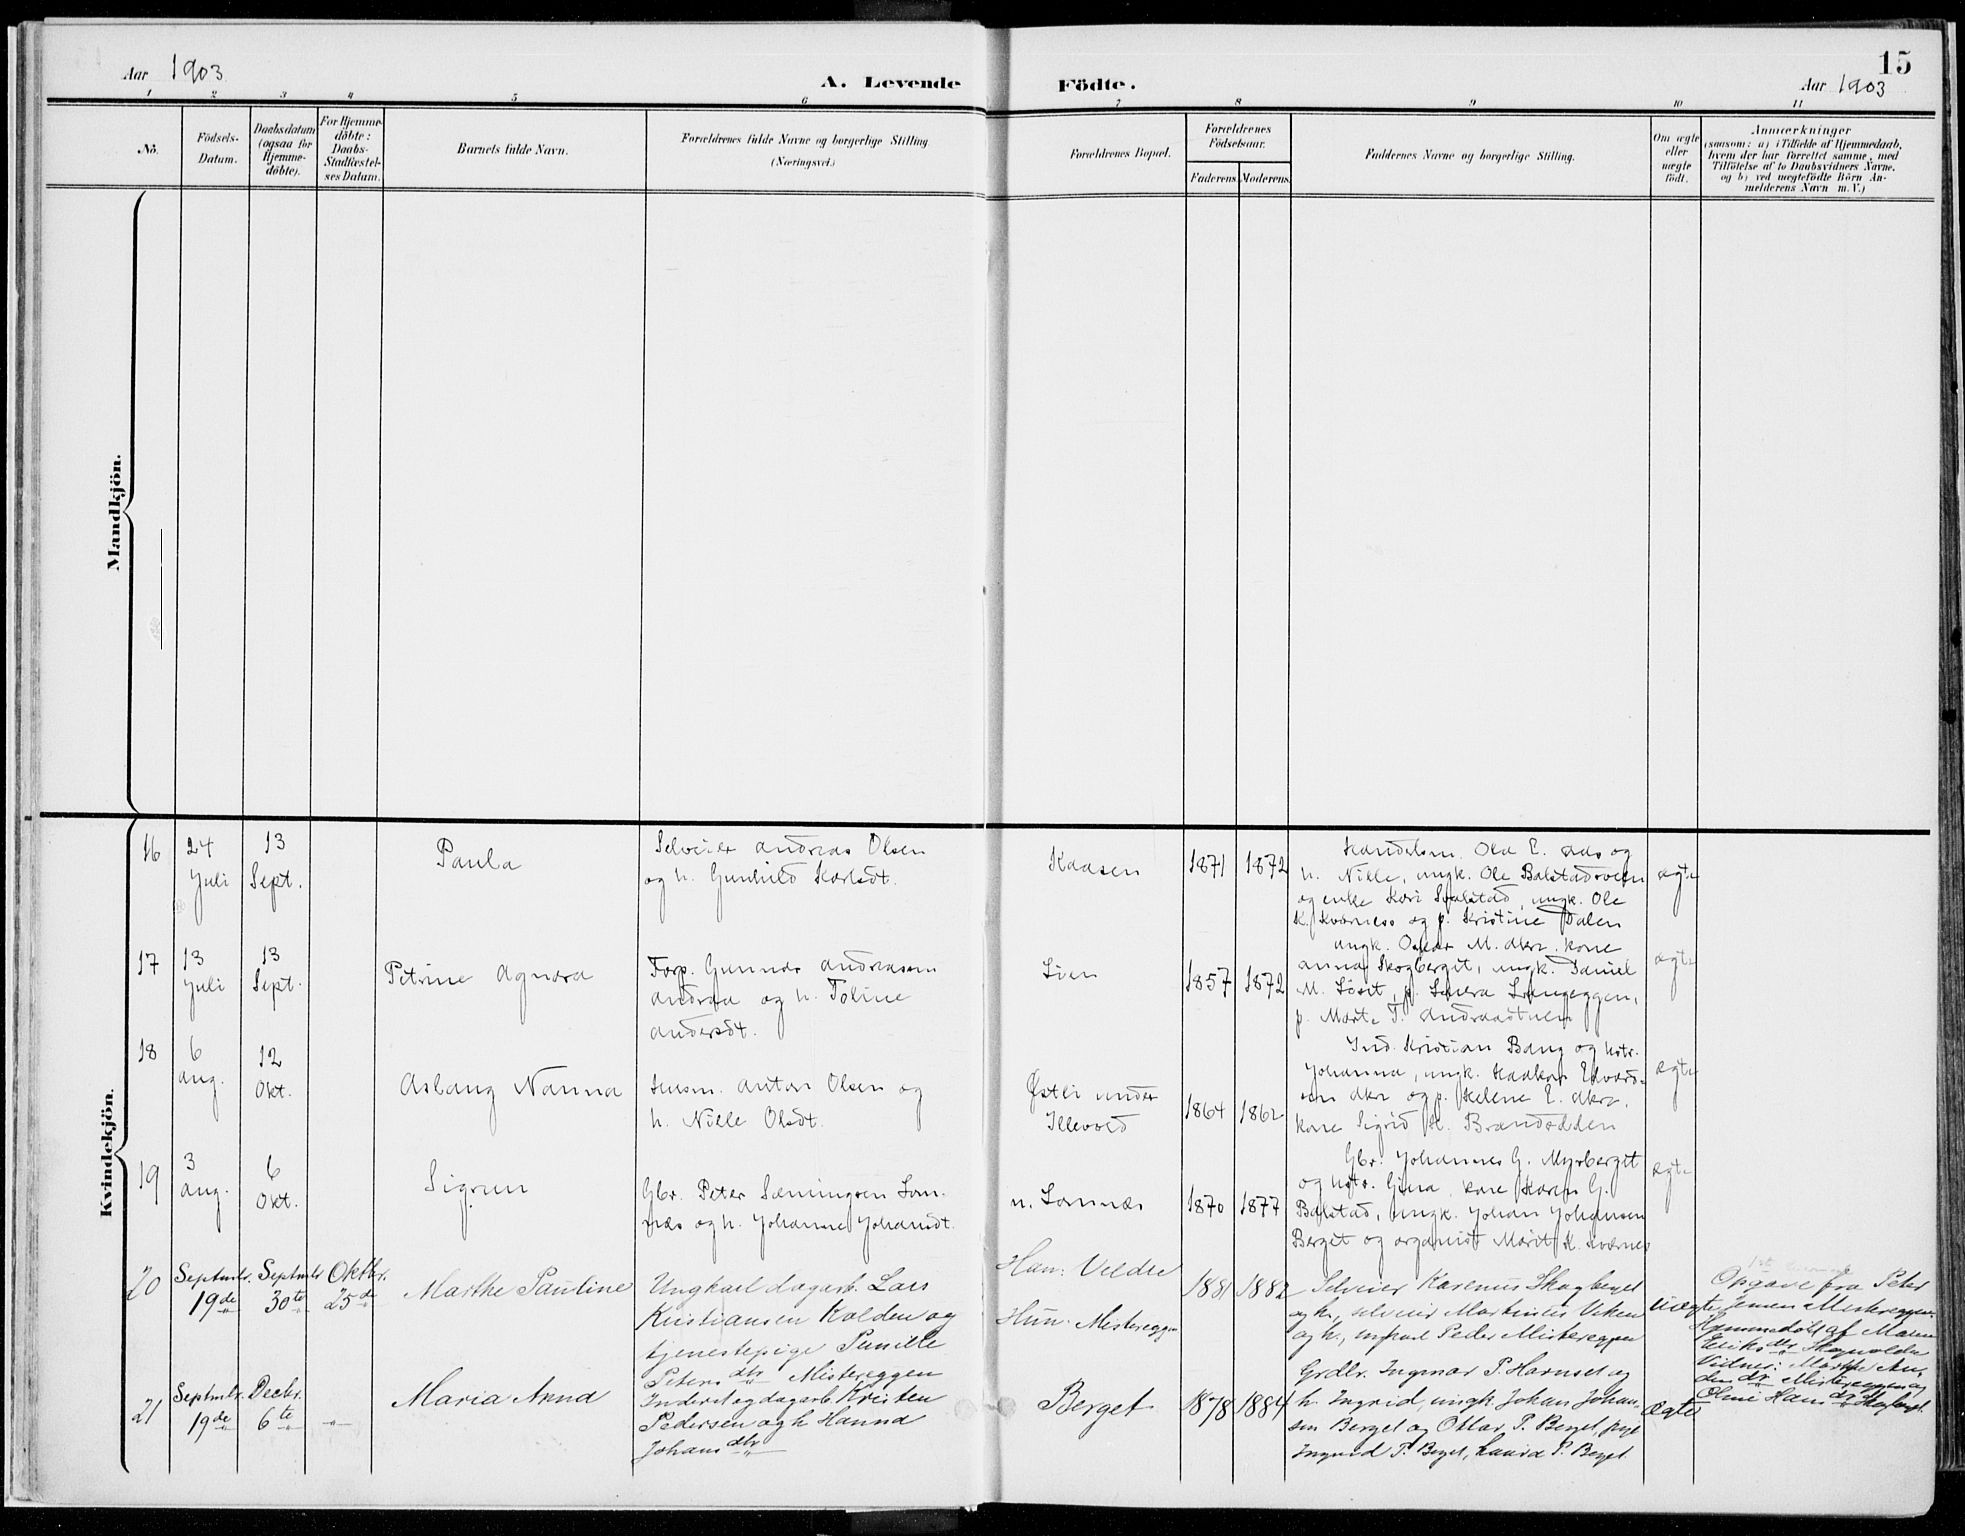 15
Aar 1903
A. Levende Födte.
Aar 1903
1 2 3 4 5 6 7 8 9 10 11
No.
Födsels-
Datum.
Daabsdatum
(ogsaa for
Hjemme-
döbte).
For Hjemme-
döbte:
Daabs-
Stadfæstel-
ses Datum.
Barnets fulde Navn.
Forældrenes fulde Navne og borgerlige Stilling
(Næringsvei.)
Forældrenes Bopæl.
Forældrenes
Födselsaar.
Faderens Moderens
Faddernes Navne og borgerlige Stilling.
Om ægte
eller
uægte
födt.
Anmærkninger
(saasom: a) i Tilfælde af Hjemmedaab,
hvem der har forrettet samme, med
Tilföielse af to Daabsvidners Navne.
og b) ved uægtefödte Börn An-
melderens Navn m.V.)
Mandkjön.
Kvindekjön.
16
24
Juli
13
Sept.
Paula
Selveier Andreas Olsen
og h. Gunhild Karlsdt.
Kaasen
1871 1872
Ola E. Aas og
h. Nille, ungk. Ole Balstadsveen
og enke Kari Balstad, ungk. Ole
K. Kværness og p. Kristine Dalen
ægte
17
13
Juli
13
Sept.
Petrine Agnora
Forp. Gunnar Andreasen
Andraa og h. Toline
Andersdt.
Lien
1857 1872
ungk. Oskar M. Akre, kone
Anna Skogberget, ungk. Daniel
M. p.
p. Marte T.
ægte
18
6
Aug.
12
Okt.
Aslaug Nanna
Husm. Anton Olsen og
h. Nille Olsdt.
Østli under
Illevold
1864 1862
Ind. Kristian Bang og hstr.
Johanna, ungk. Haakon Edvard-
sen Akre og p. Helene E. Akre,
kone Sigrid H. Brændodden
ægte
19
3
Aug.
6
Okt.
Sigrun
Gbr. Peter Sæmingsen Lom-
næs og h. Johanne Johansdt.
n. Lomnæs
1870 1877
Gbr. Johannes G. Myrberget
og hstr. Gina, kone Karen G.
Balstad, ungk. Johan Johansen
Berget og organist Marit K. Kværnes
ægte
20
Septmbr.
19de
Septmbr
30te
Oktbr.
25de
Marthe Pauline
Ungkarl dagarb. Lars
Kristiansen Kolden og
tjenestepige Pernille
Petersdtr Mistereggen
Han: Veldre
Hun: Mistereggen
1881 1882
Selveier Karenus Skogberget
og h., selveier Martinius Viken
og h., ungkarl Peder Mistereggen
Uægte
Opgave fra Peter
Jensen Mistereggen.
Hjemmedöbt af Maren
Eriksdtr
Vidner: Marthe An-
dersdtr Mistereggen og
Oline Hansdtr Skogberget.
21
Septmbr.
19de
Decbr.
6te
-"-
Maria Anna
Inderst og dagarb. Kristen
Pedersen og h. Hanna
Johansdtr
Berget
1878 1884
Grdbr. Ingmar P. Harnset og
h. Ingrid, ungk. Johan Johan-
sen Berget og Ottar P. Berget, pige
Ingrid T. Berget, Laura P. Berget.
Ægte